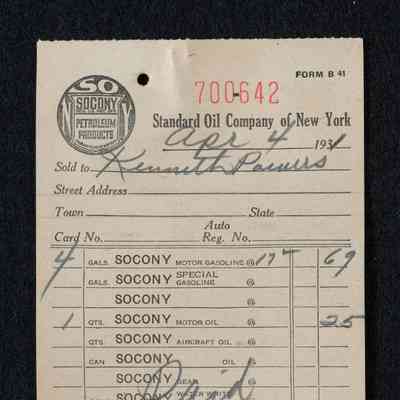 FORM B 41
SO
SOCONY
PETROLEUM
PRODUCTS
700642
Standard Oil Company of New York
Apr 4 1931
Sold to Kenneth Powers
Street Address
Town State
Card No. Auto Reg. No.
4 GALS. SOCONY MOTOR GASOLINE @ 17 69
GALS. SOCONY SPECIAL GASOLINE @
SOCONY @
1 QTS. SOCONY MOTOR OIL @ 25
QTS. SOCONY AIRCRAFT OIL @
CAN SOCONY OIL @
SOCONY GEAR
SOCONY WATER WHITE
Paid